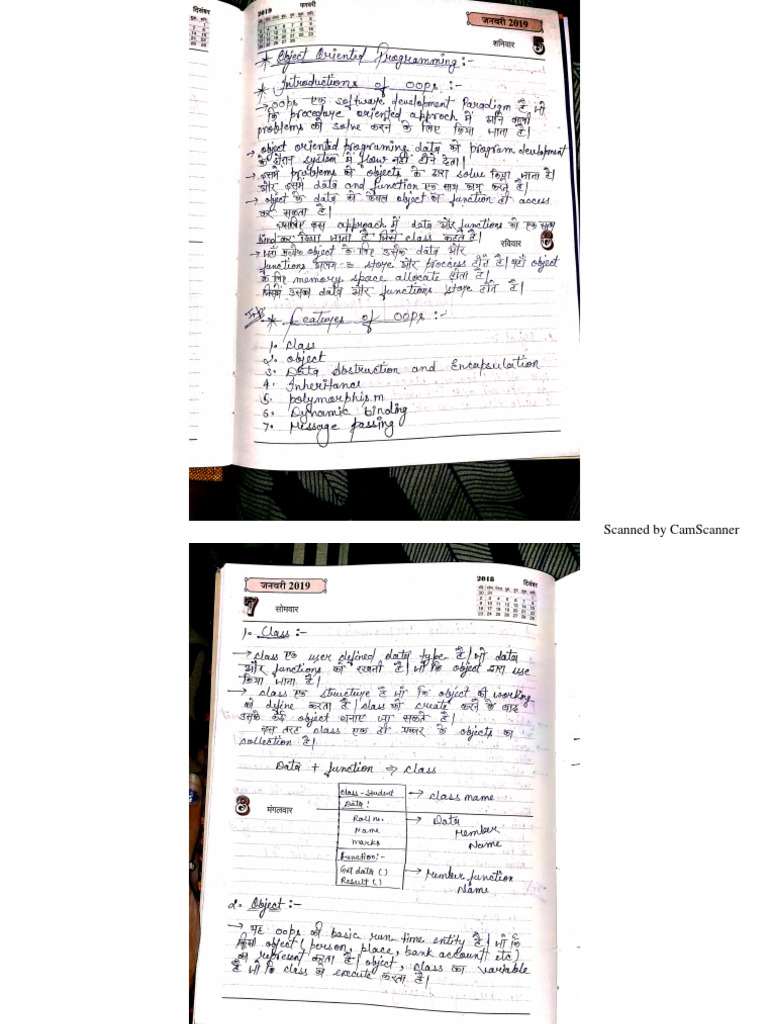 2019 फरवरी
जनवरी 2019
दिसंबर
शनिवार 5
* Object Oriented Programming :-
* Introductions of OOPs :-
→ OOPs एक software development Paradigm है जो
कि procedure oriented approch में आने वाली
problems को solve करने के लिए किया जाता है।
→ object oriented programing data को program development
के दौरान system में flow नहीं होने देता।
→ इसमें problems को objects के द्वारा solve किया जाता है।
और इसमें data and function एक साथ काम करते हैं।
→ object के data को केवल object का function ही access
कर सकता है।
इसलिए इस approach में data और functions को एक साथ
bind कर दिया जाता है जिसे class कहते हैं।
रविवार 6
→ यहाँ प्रत्येक object के लिए उसके data और
functions अलग-2 store और process होते हैं। यहाँ object
के लिए memory space allocate होता है।
जिसमें उसका data और functions store होते हैं।
* Features of OOPs :-
1. Class
2. object
3. Data Abstraction and Encapsulation
4. Inheritance
5. polymorphism
6. Dynamic binding
7. Message passing
Scanned by CamScanner
जनवरी 2019
2018 दिसंबर
7 सोमवार
1. Class :-
→ class एक user defined data type है। जो data
और functions को रखती है। जो कि object द्वारा use
किया जाता है।
→ class एक structure है जो कि object की working
को define करता है। class को create करने के बाद
उसके कई object बनाए जा सकते हैं।
इस तरह class एक ही प्रकार के objects का
collection है।
Data + function ⇒ class
8 मंगलवार
Class - Student → class name
Data :
Roll no. → Data
Name Member
marks Name
Function :-
Get data () → Member function
Result () Name
2. Object :-
→ यह OOPs की basic run time entity है। जो कि
किसी object (person, place, bank account etc)
को represent करता है। object, class का variable
है जो कि class को execute करता है।